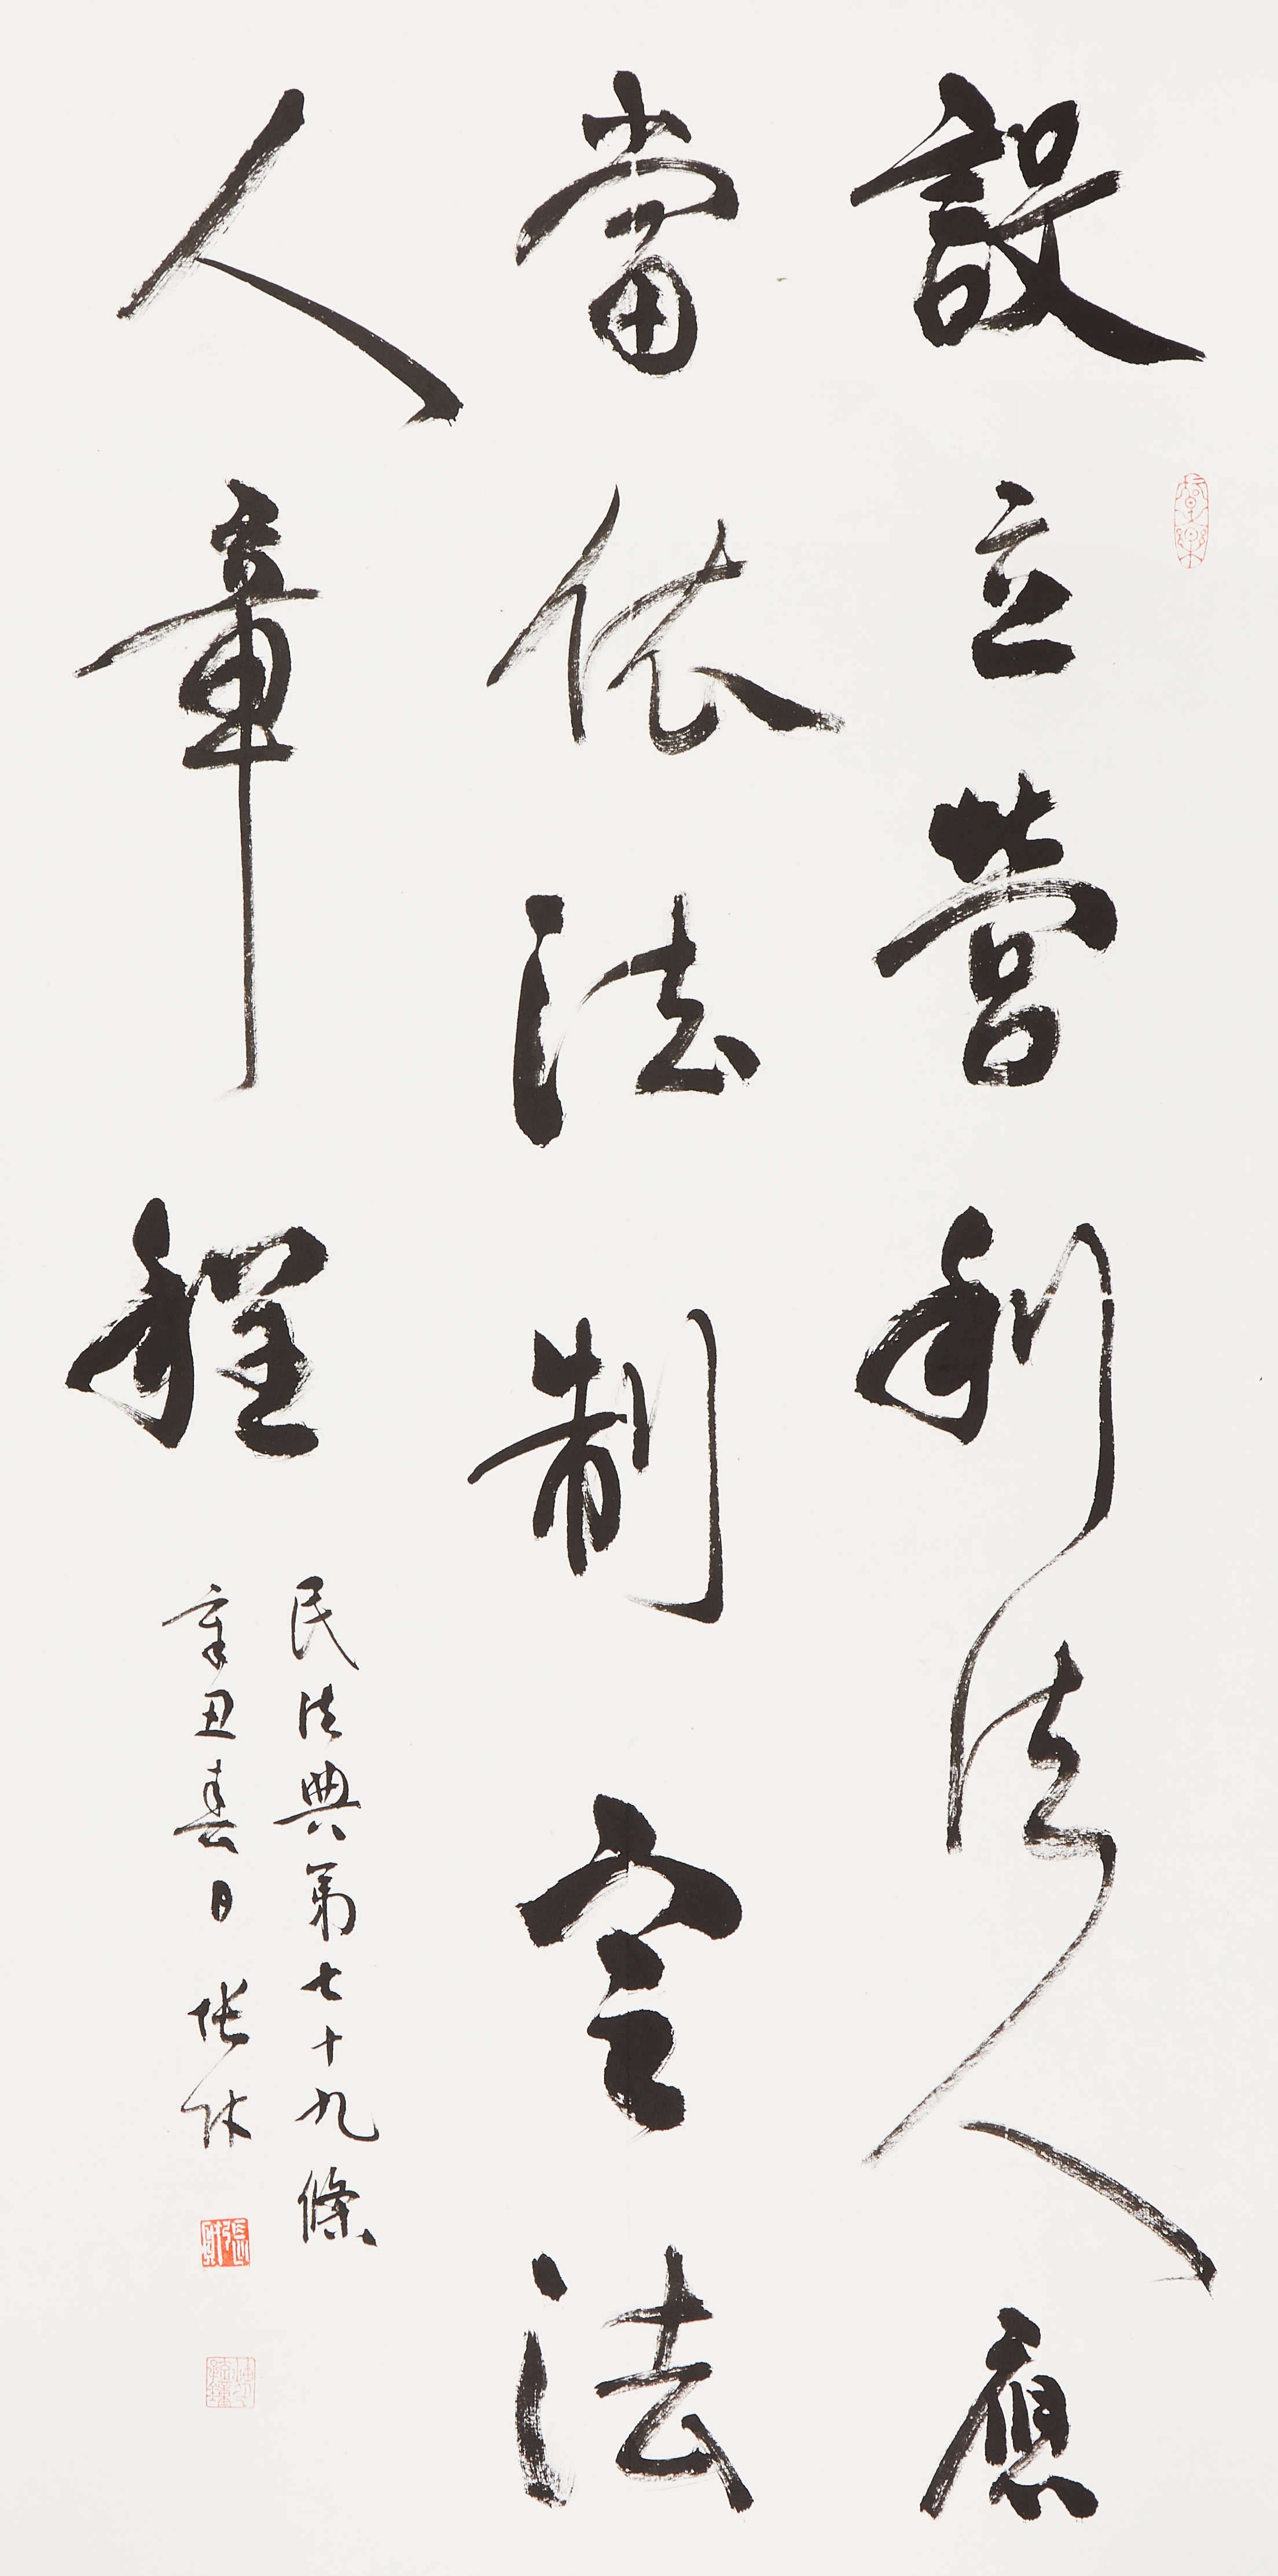 設立營利法人應
當依法制定法
人章程
民法典第七十九條
辛丑春日 张